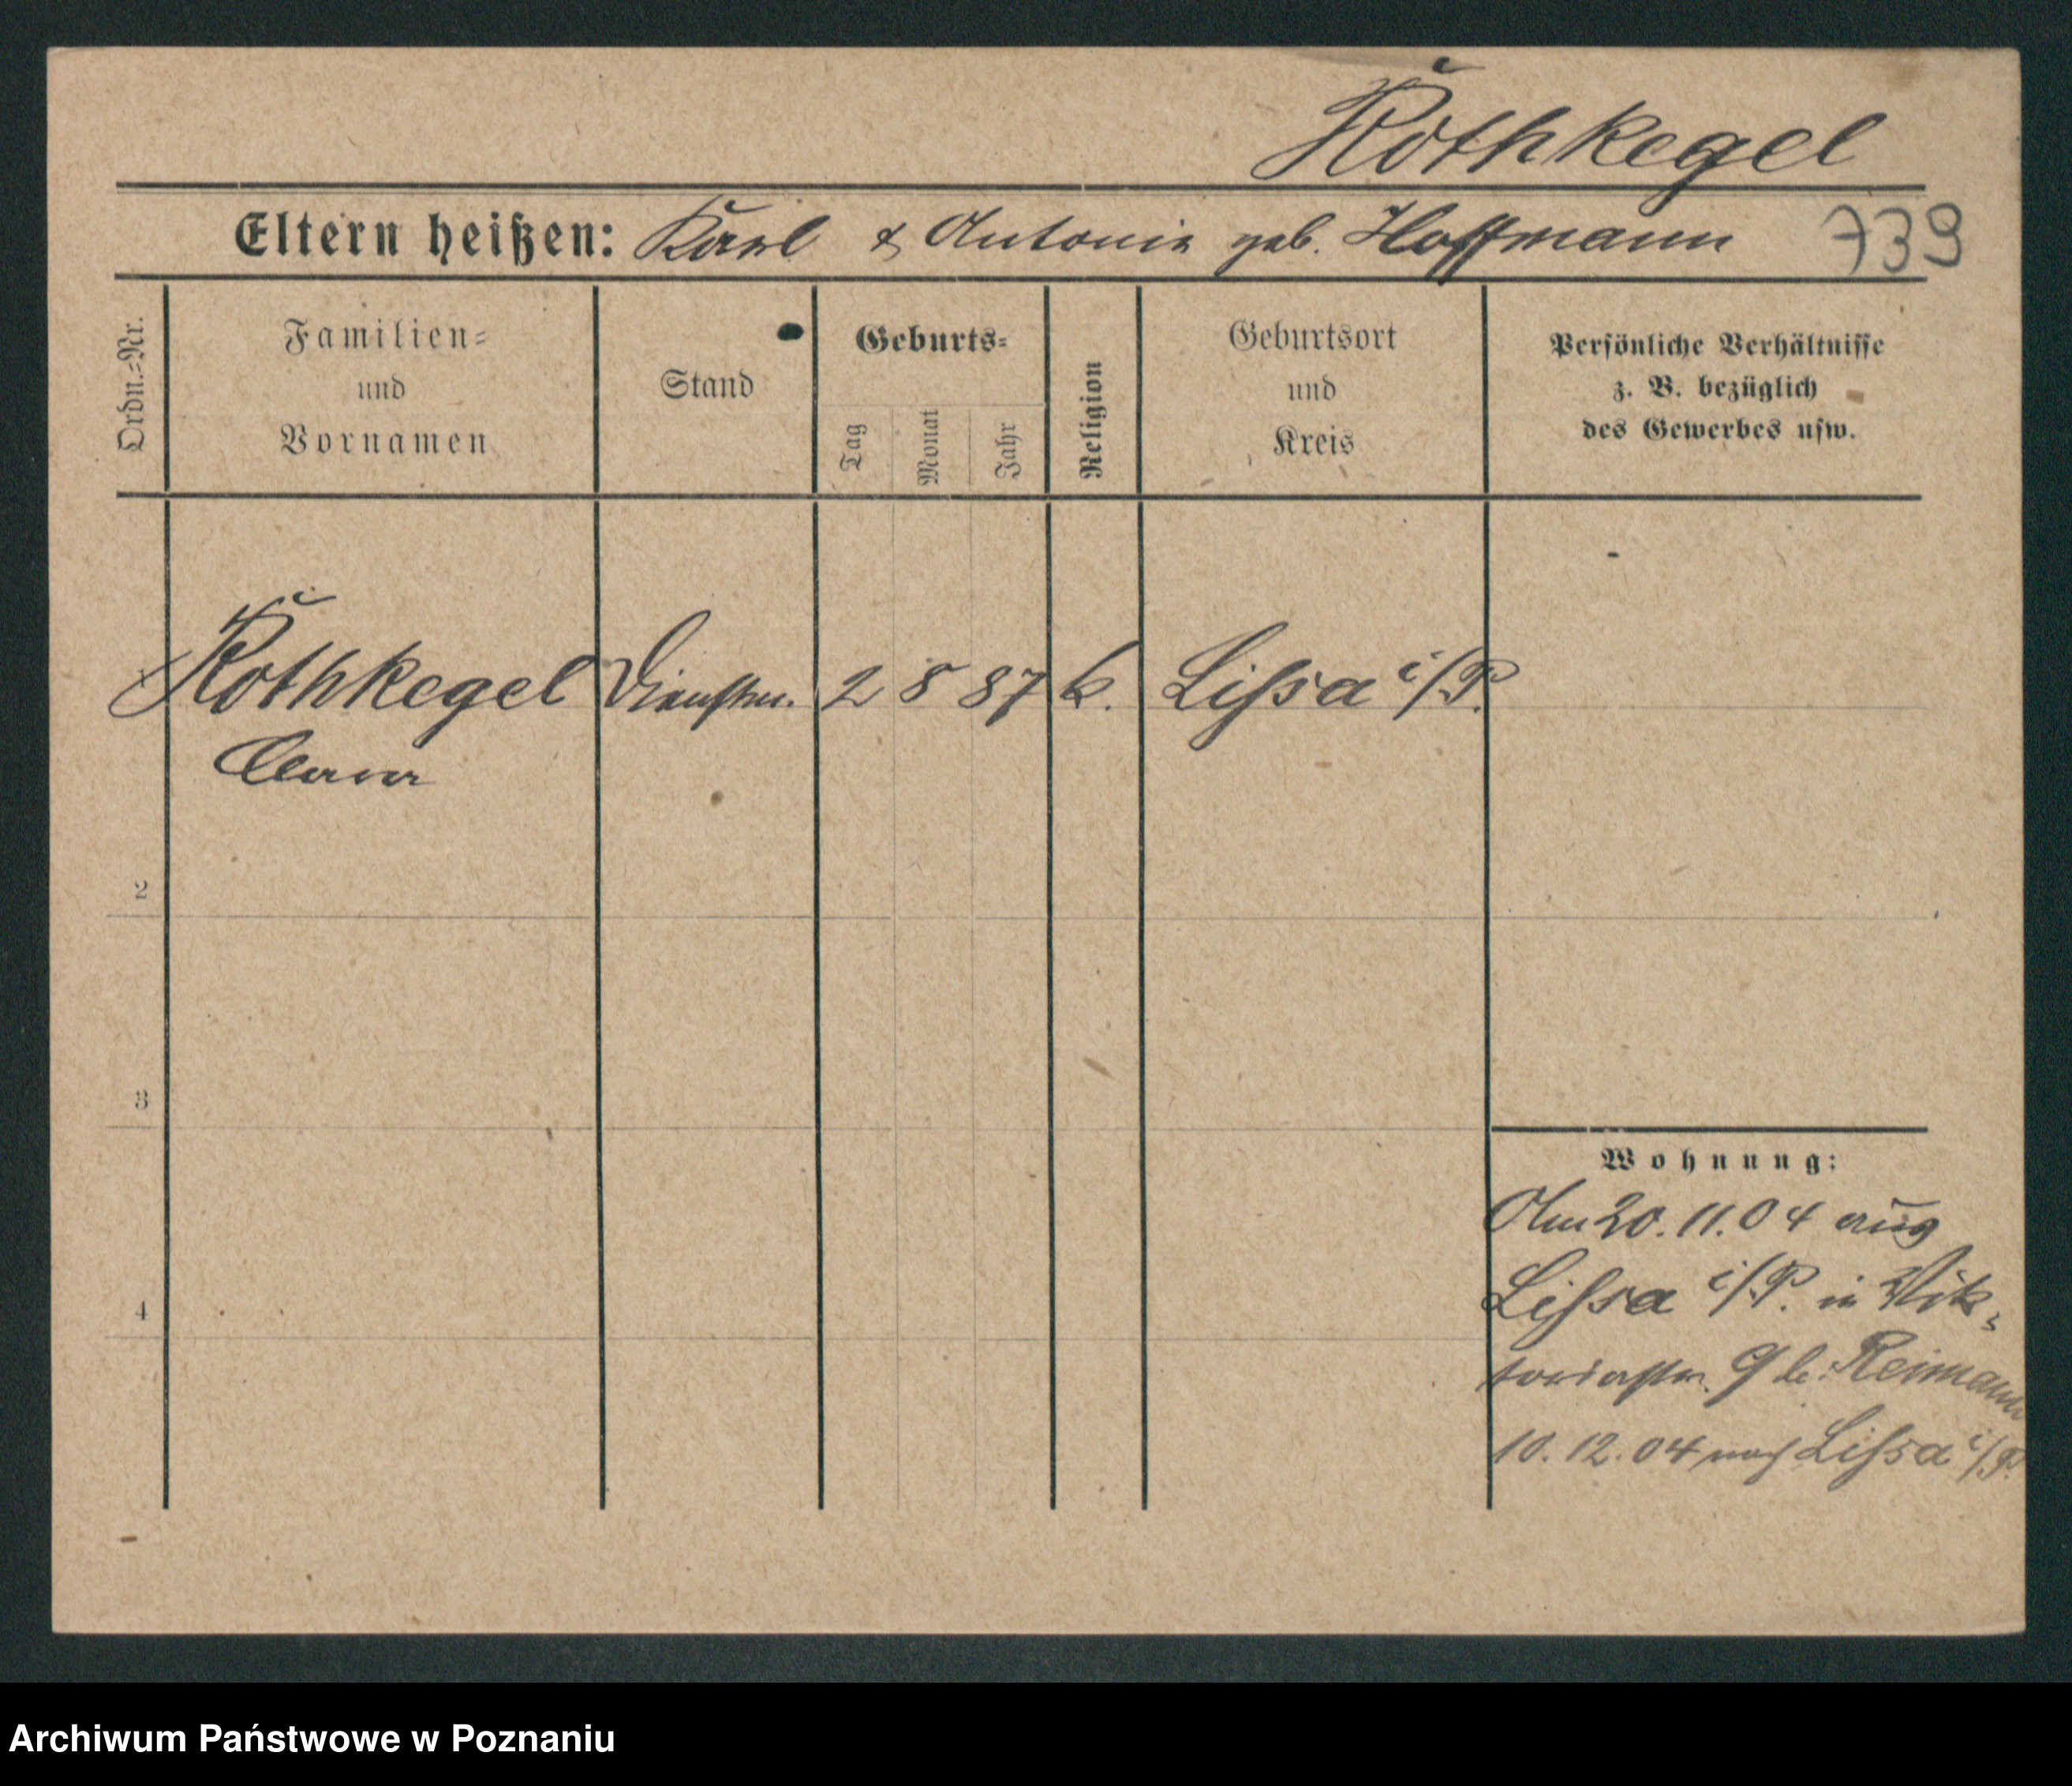 Rothkegel
Eltern heißen: Karl & Antonie geb. Hoffmann 739
Ordn.-Nr.
Familien-
und
Vornamen
Stand
Geburts-
Tag
Monat
Jahr
Religion
Geburtsort
und
Kreis
Persönliche Verhältnisse
z. B. bezüglich
des Gewerbes usw.
Rothkegel Dienstm. 2 8 87 k. Lissa i/P.
Clara
2
3
4
Wohnung:
Am 20. 11. 04 aus
Lissa i/P. in Vik-
toriastr. 9 b. Reimann
10. 12. 04 nach Lissa i/P.
Archiwum Państwowe w Poznaniu